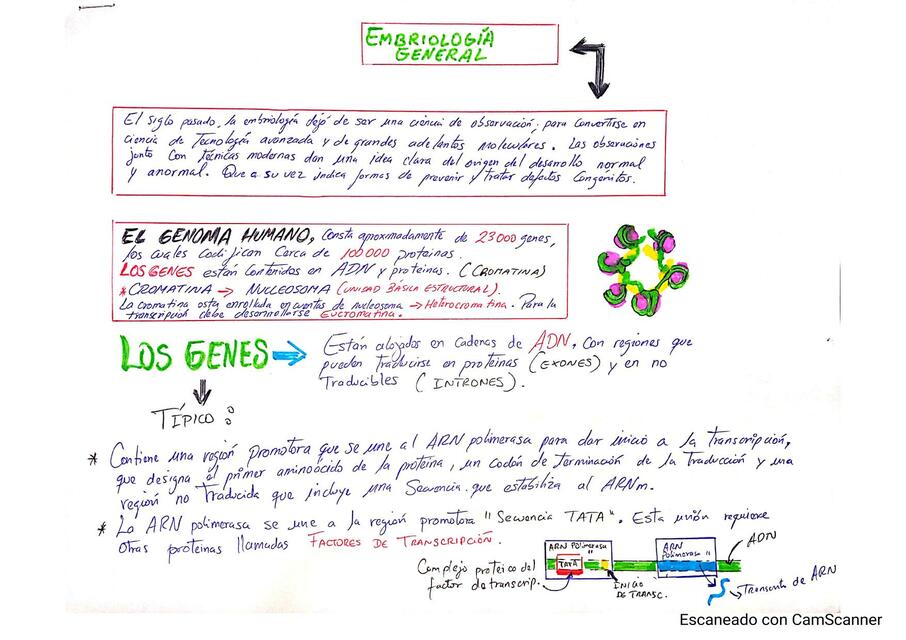 EMBRIOLOGÍA
GENERAL
El siglo pasado, la embriología dejó de ser una ciencia de observación, para convertirse en
ciencia de Tecnología avanzada y de grandes adelantos moleculares. Las observaciones
junto con técnicas modernas dan una idea clara del origen del desarollo normal
y anormal. Que a su vez indica formas de prevenir y tratar defectos Congénitos.
EL GENOMA HUMANO, Consta aproximadamente de 23000 genes,
los cuales codifican Cerca de 100000 proteínas.
LOS GENES están Contenidos en ADN y proteinas. (CROMATINA)
* CROMATINA → NUCLEOSOMA (UNIDAD BÁSICA ESTRUCTURAL).
La cromatina está enrollada en cuentas de nucleosoma → Heterocromatina. Para la
transcripción debe desenrollarse Eucromatina.
LOS GENES → Están alojados en Cadenas de ADN, Con regiones que
pueden Traducirse en proteínas (EXONES) y en no
Traducibles (INTRONES).
TÍPICO :
* Contiene una región promotora que se une al ARN polimerasa para dar inicio a la Transcripción,
que designa al primer aminoácido de la proteína, un codón de Terminación de la Traducción y una
región no Traducida que incluye una Secuencia que estabiliza al ARNm.
* La ARN polimerasa se une a la región promotora "Secuencia TATA". Esta unión requiere
Otras proteínas llamadas FACTORES DE TRANSCRIPCIÓN.
ARN POLIMERASA "
TATA
ARN
Polimerasa "
ADN
Complejo protéico del
factor de transcrip.
INICIO
DE TRANSC.
Transcrito de ARN
Escaneado con CamScanner